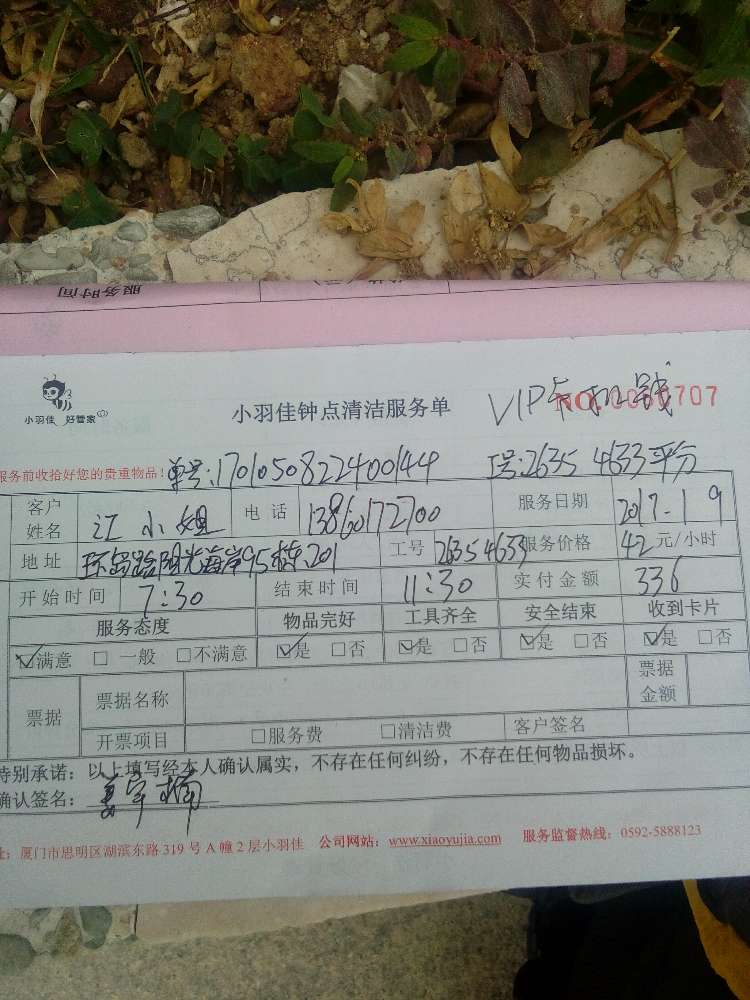 服务时间
小羽佳 好管家
小羽佳钟点清洁服务单 VIP卡扣钱 NO. 707
服务前收拾好您的贵重物品! 单号:1701050822400144 工号:2635 4633平分
客户姓名 江小姐 电话 13860172700 服务日期 2017-1 9
地址 环岛路阳光海岸95栋.201 工号 2635 4633 服务价格 42 元/小时
开始时间 7:30 结束时间 11:30 实付金额 336
服务态度 物品完好 工具齐全 安全结束 收到卡片
☑满意 □一般 □不满意 ☑是 □否 ☑是 □否 ☑是 □否 ☑是 □否
票据 票据名称 票据金额
开票项目 □服务费 □清洁费 客户签名
特别承诺:以上填写经本人确认属实,不存在任何纠纷,不存在任何物品损坏。
确认签名:
址:厦门市思明区湖滨东路 319 号 A 幢 2 层小羽佳 公司网站:www.xiaoyujia.com 服务监督热线:0592-5888123